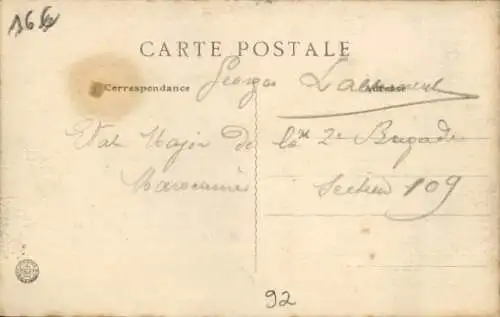 166
CARTE POSTALE
Correspondance
Adresse
Georges
Etat Major de la 2e Brigade
Marocaine
Section 109
92